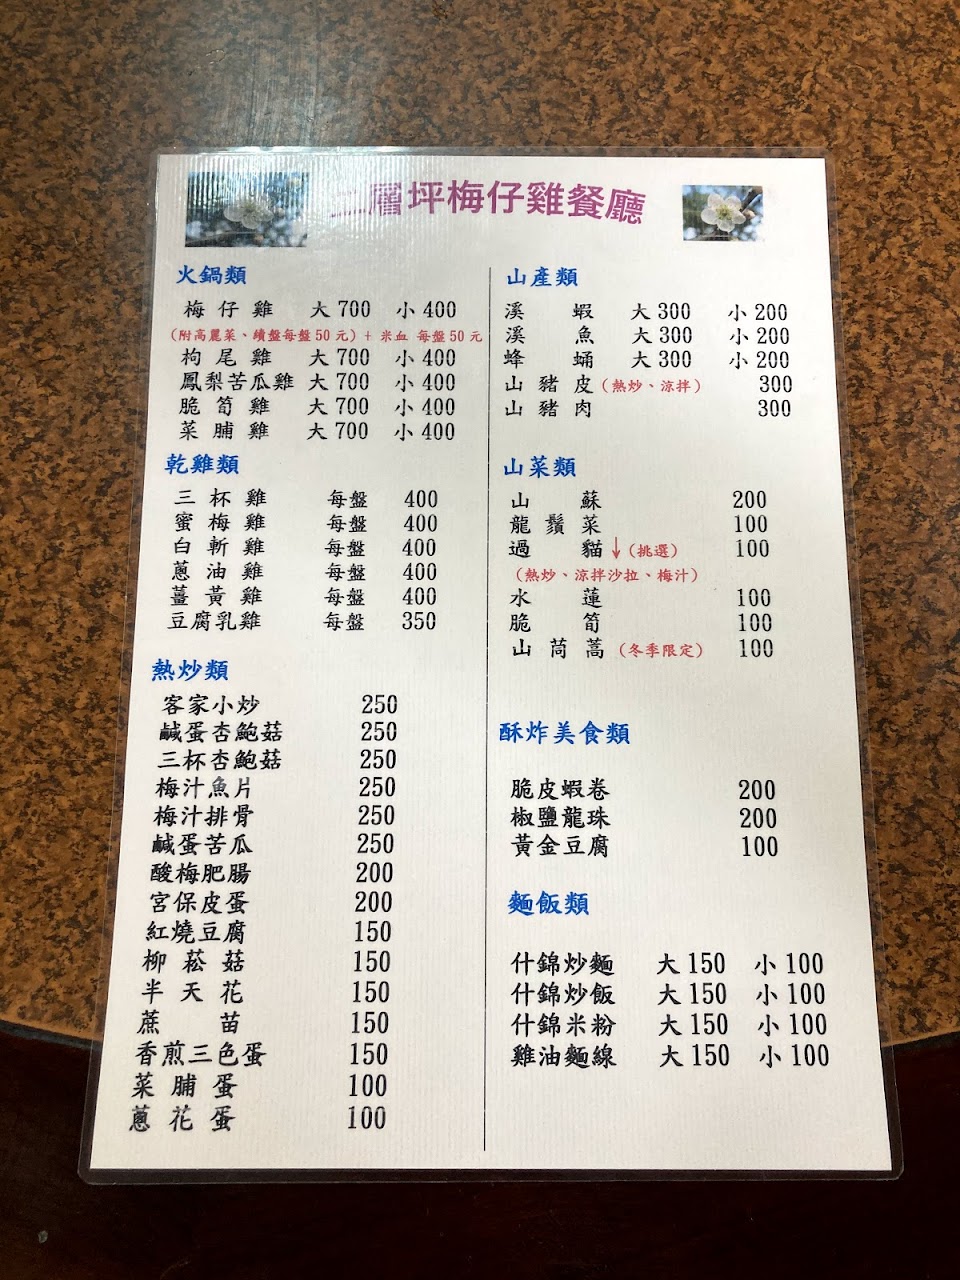 二層坪梅仔雞餐廳
火鍋類
梅仔雞 大700 小400
(附高麗菜、續盤每盤50元)+ 米血 每盤50元
枸尾雞 大700 小400
鳳梨苦瓜雞 大700 小400
脆筍雞 大700 小400
菜脯雞 大700 小400
乾雞類
三杯雞 每盤 400
蜜梅雞 每盤 400
白斬雞 每盤 400
蔥油雞 每盤 400
薑黃雞 每盤 400
豆腐乳雞 每盤 350
熱炒類
客家小炒 250
鹹蛋杏鮑菇 250
三杯杏鮑菇 250
梅汁魚片 250
梅汁排骨 250
鹹蛋苦瓜 250
酸梅肥腸 200
宮保皮蛋 200
紅燒豆腐 150
柳菘菇 150
半天花 150
蔗苗 150
香煎三色蛋 150
菜脯蛋 100
蔥花蛋 100
山產類
溪蝦 大300 小200
溪魚 大300 小200
蜂蛹 大300 小200
山豬皮(熱炒、涼拌) 300
山豬肉 300
山菜類
山蘇 200
龍鬚菜 100
過貓↓(挑選) 100
(熱炒、涼拌沙拉、梅汁)
水蓮 100
脆筍 100
山茼蒿(冬季限定) 100
酥炸美食類
脆皮蝦卷 200
椒鹽龍珠 200
黃金豆腐 100
麵飯類
什錦炒麵 大150 小100
什錦炒飯 大150 小100
什錦米粉 大150 小100
雞油麵線 大150 小100